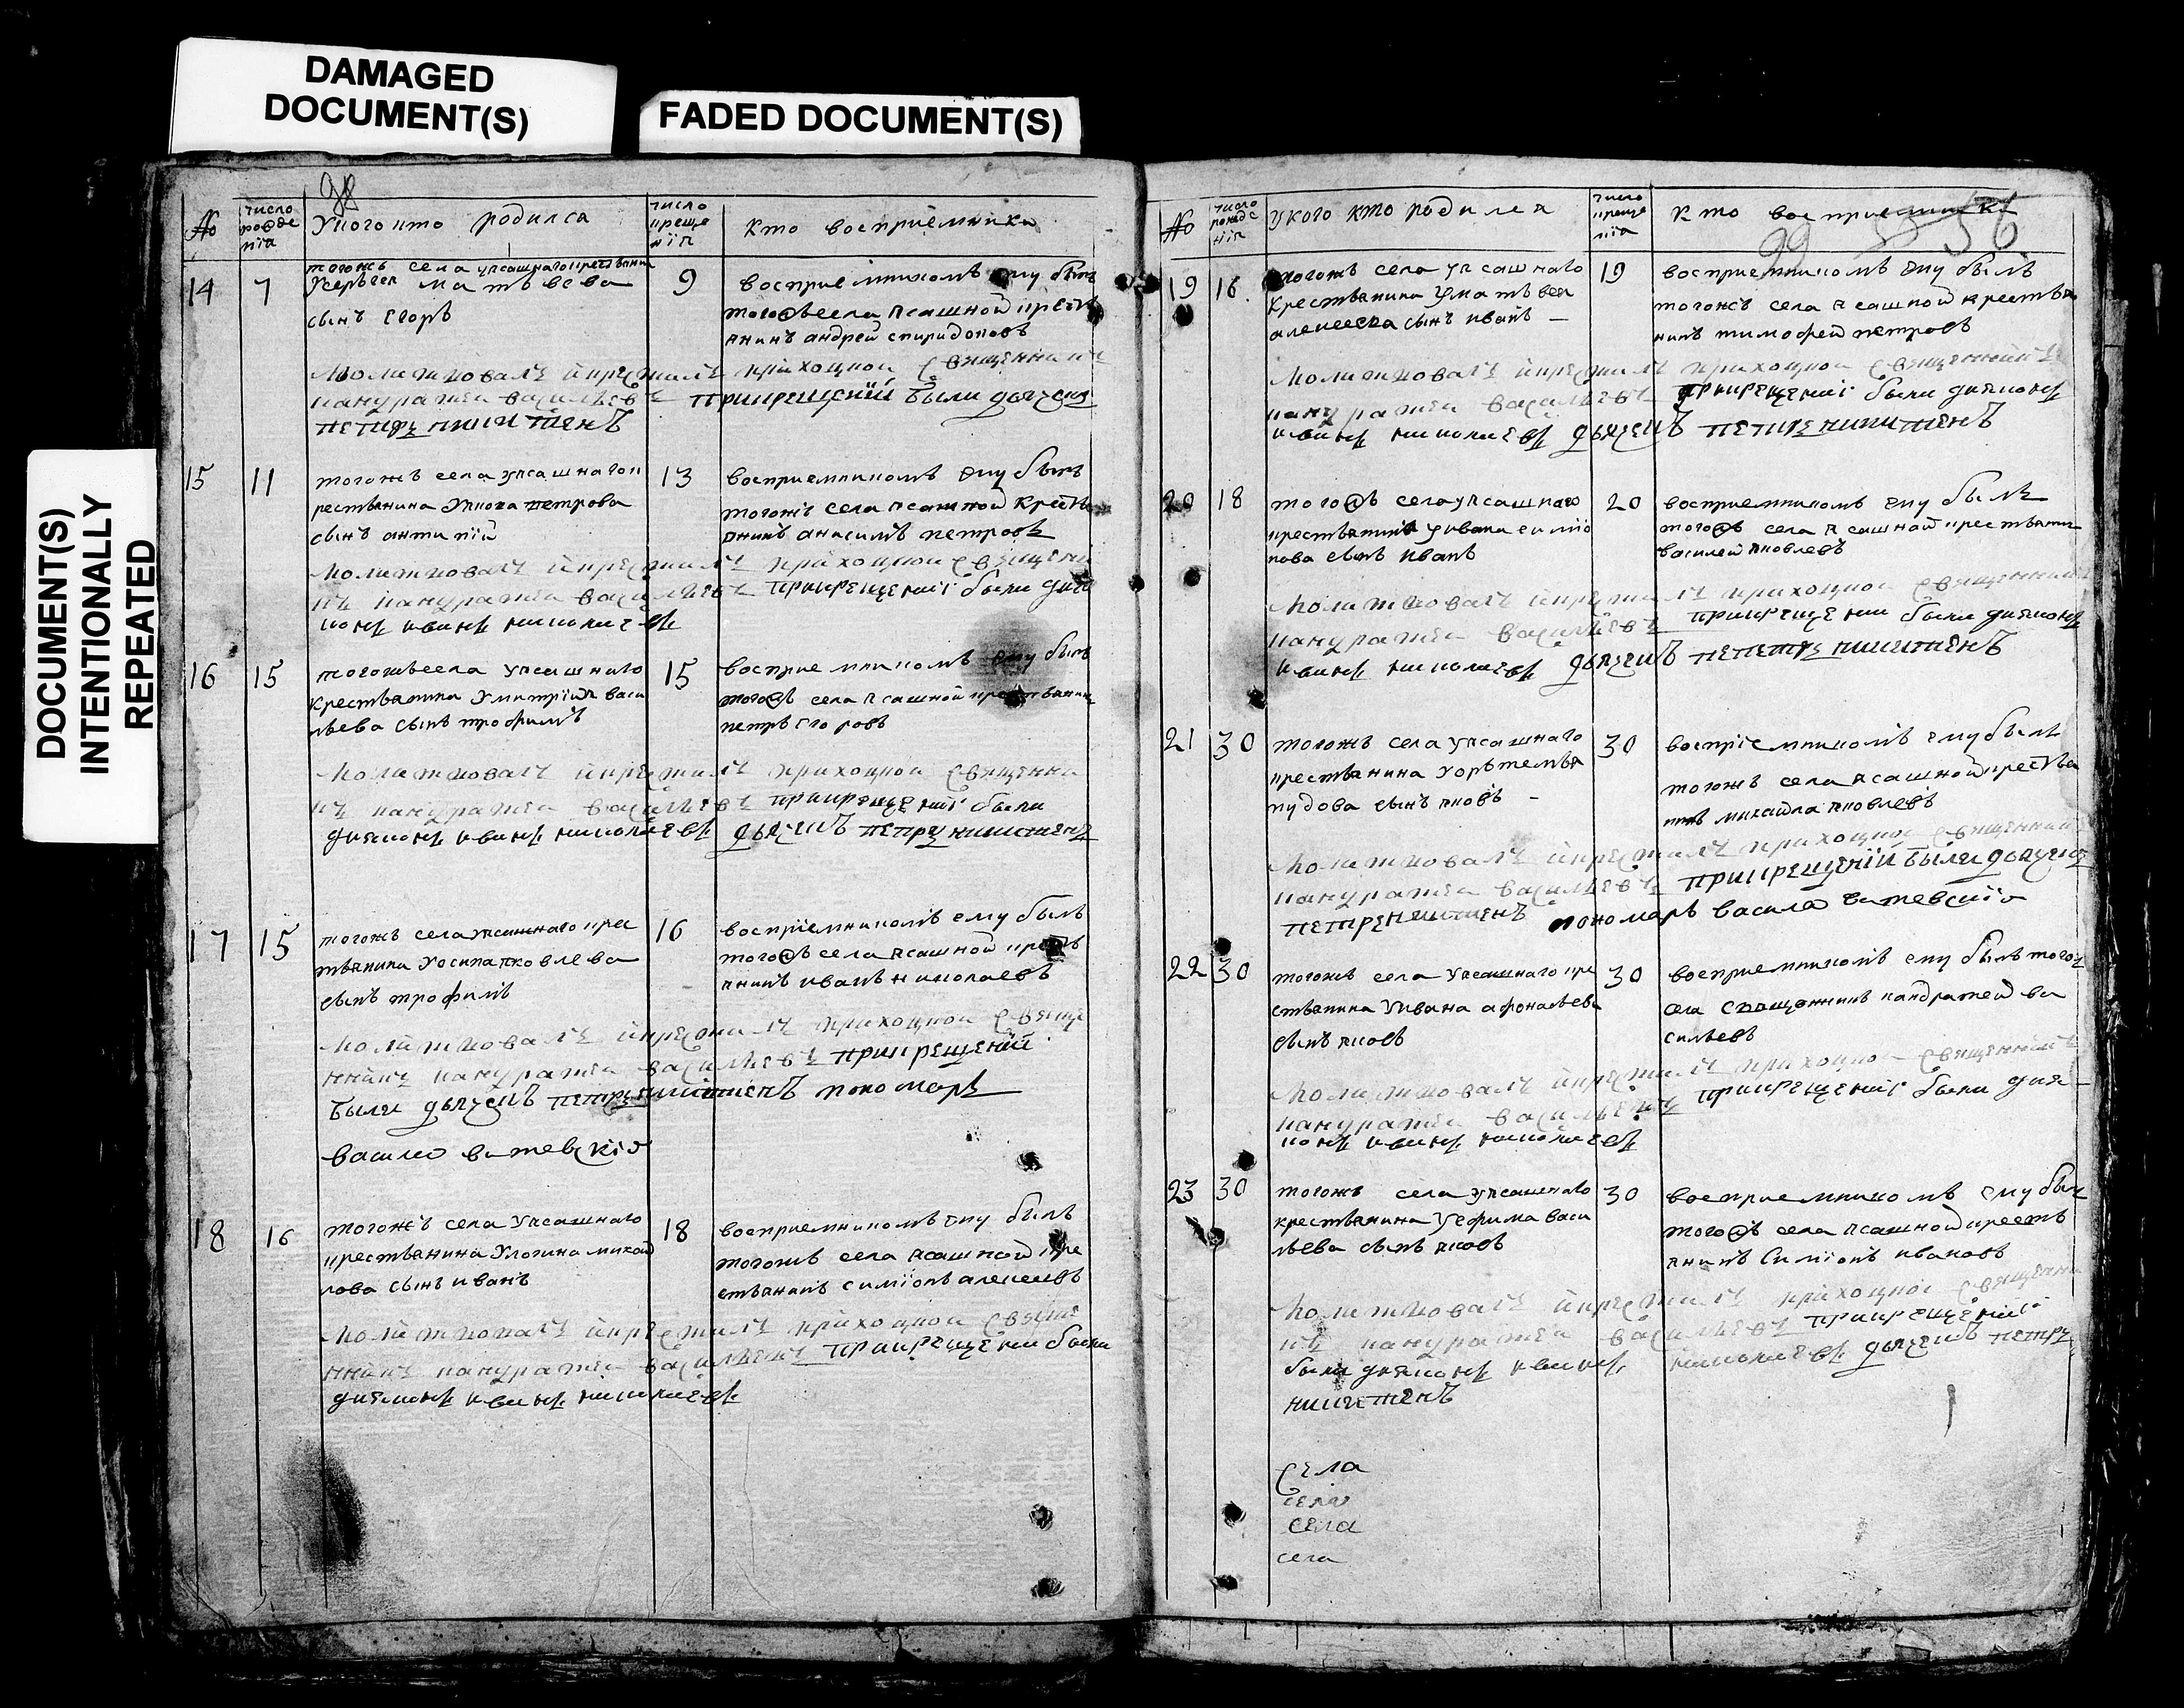 DAMAGED
DOCUMENT(S)
FADED DOCUMENT(S)
DOCUMENT(S)
INTENTIONALLY
REPEATED
98
№
число рожде нїя
У кого кто родился
число креще нїя
кто восприемники
14
7
тогожъ села упсашнаго крестьянина
Усергея матвеева
сынъ егоръ
9
восприемникомъ ему былъ
тогожъ села псашной крестъ
янинъ андрей спиридоновъ
молитвовалъ и крестилъ приходной священникъ
кандратей васильевъ при крещенїи были дьячекъ
петръ никитенъ
15
11
тогожъ села упсашнагок
рестьянина петрова
сынъ антипїй
13
восприемникомъ ему былъ
тогожъ села псашной кресть
янинъ анисимъ петровъ
молитвовалъ и крестилъ приходной священи
къ кандратей васильевъ при крещенїи были дия
конъ иванъ николаевъ
16
15
тогожъ села упсашнаго
крестьянина Умитрїя васи
льева сынъ трофимъ
15
восприемникомъ ему былъ
тогожъ села псашной крестьянинъ
петръ егоровъ
молитвовалъ и крестилъ приходной священни
къ кандратей васильевъ при крещенїи были
дияконъ иванъ николаевъ дьячекъ петръ никитенъ
17
15
тогожъ села упсашнаго кре
стьянина Уосипа яковлева
сынъ трофимъ
16
воспрїемникомъ ему былъ
тогожъ села псашной кресть
янинъ иванъ николаевъ
молитвовалъ и крестилъ приходной свяще
нникъ кандратей васильевъ при крещенїи
были дьячекъ петръ никитенъ пономарь
василей витевскїй
18
16
тогожъ села Упсашнаго
крестьянина Улогина михай
лова сынъ иванъ
18
восприемникомъ ему былъ
тогожъ села псашной кре
стьянинъ симїонъ алексеевъ
молитвовалъ и крестилъ приходной свяще
нникъ кандратей васильевъ при крещенїи были
дияконъ иванъ николаевъ
№
число рожде нїя
У кого кто родился
число креще нїя
кто восприемники
99
56
19
16
тогожъ села упсашнаго
крестьянина Уматвея
алексеева сынъ иванъ
19
восприемникомъ ему былъ
тогожъ села псашной крестья
нинъ тимофей петровъ
молитвовалъ и крестилъ приходной священникъ
кандратей васильевъ при крещенїи были дияконъ
иванъ николаевъ дьячекъ петръ никитенъ
20
18
тогожъ села упсашнаго
крестьянина Уивана симїо
нова сынъ иванъ
20
восприемникомъ ему былъ
тогожъ села псашной крестьянин
василей яковлевъ
молитвовалъ и крестилъ приходной священникъ
кандратей васильевъ при крещенїи были дияконъ
иванъ николаевъ дьячекъ петръ никитенъ
21
30
тогожъ села упсашнаго
крестьянина
сынъ яковъ
30
воспрїемникомъ ему былъ
тогожъ села псашной крестья
нинъ михайла яковлевъ
молитвовалъ и крестилъ приходной священникъ
кандратей васильевъ при крещенїи были дьячекъ
петръ никитенъ пономарь василей витевскїй
22
30
тогожъ села Упсашнаго кре
стьянина Уивана афонасьева
сынъ яковъ
30
восприемникомъ ему былъ тогож
села священникъ кандратей ва
сильевъ
молитвовалъ и крестилъ приходной священникъ
кандратей васильевъ при крещенїи были дия
конъ иванъ николаевъ
23
30
тогожъ села упсашнаго
крестьянина Уефима васи
льева сынъ яковъ
30
восприемникомъ ему былъ
тогожъ села псашной кресть
янинъ симїонъ ивановъ
молитвовалъ и крестилъ приходной священни
къ кандратей васильевъ при крещенїи
были дияконъ иванъ николаевъ дьячекъ петръ
никитенъ
села
села
села
села